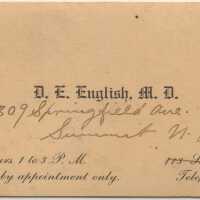 D. E. English, M. D.
309 Springfield Ave.
Summit N.
1 to 3 P. M.
by appointment only.